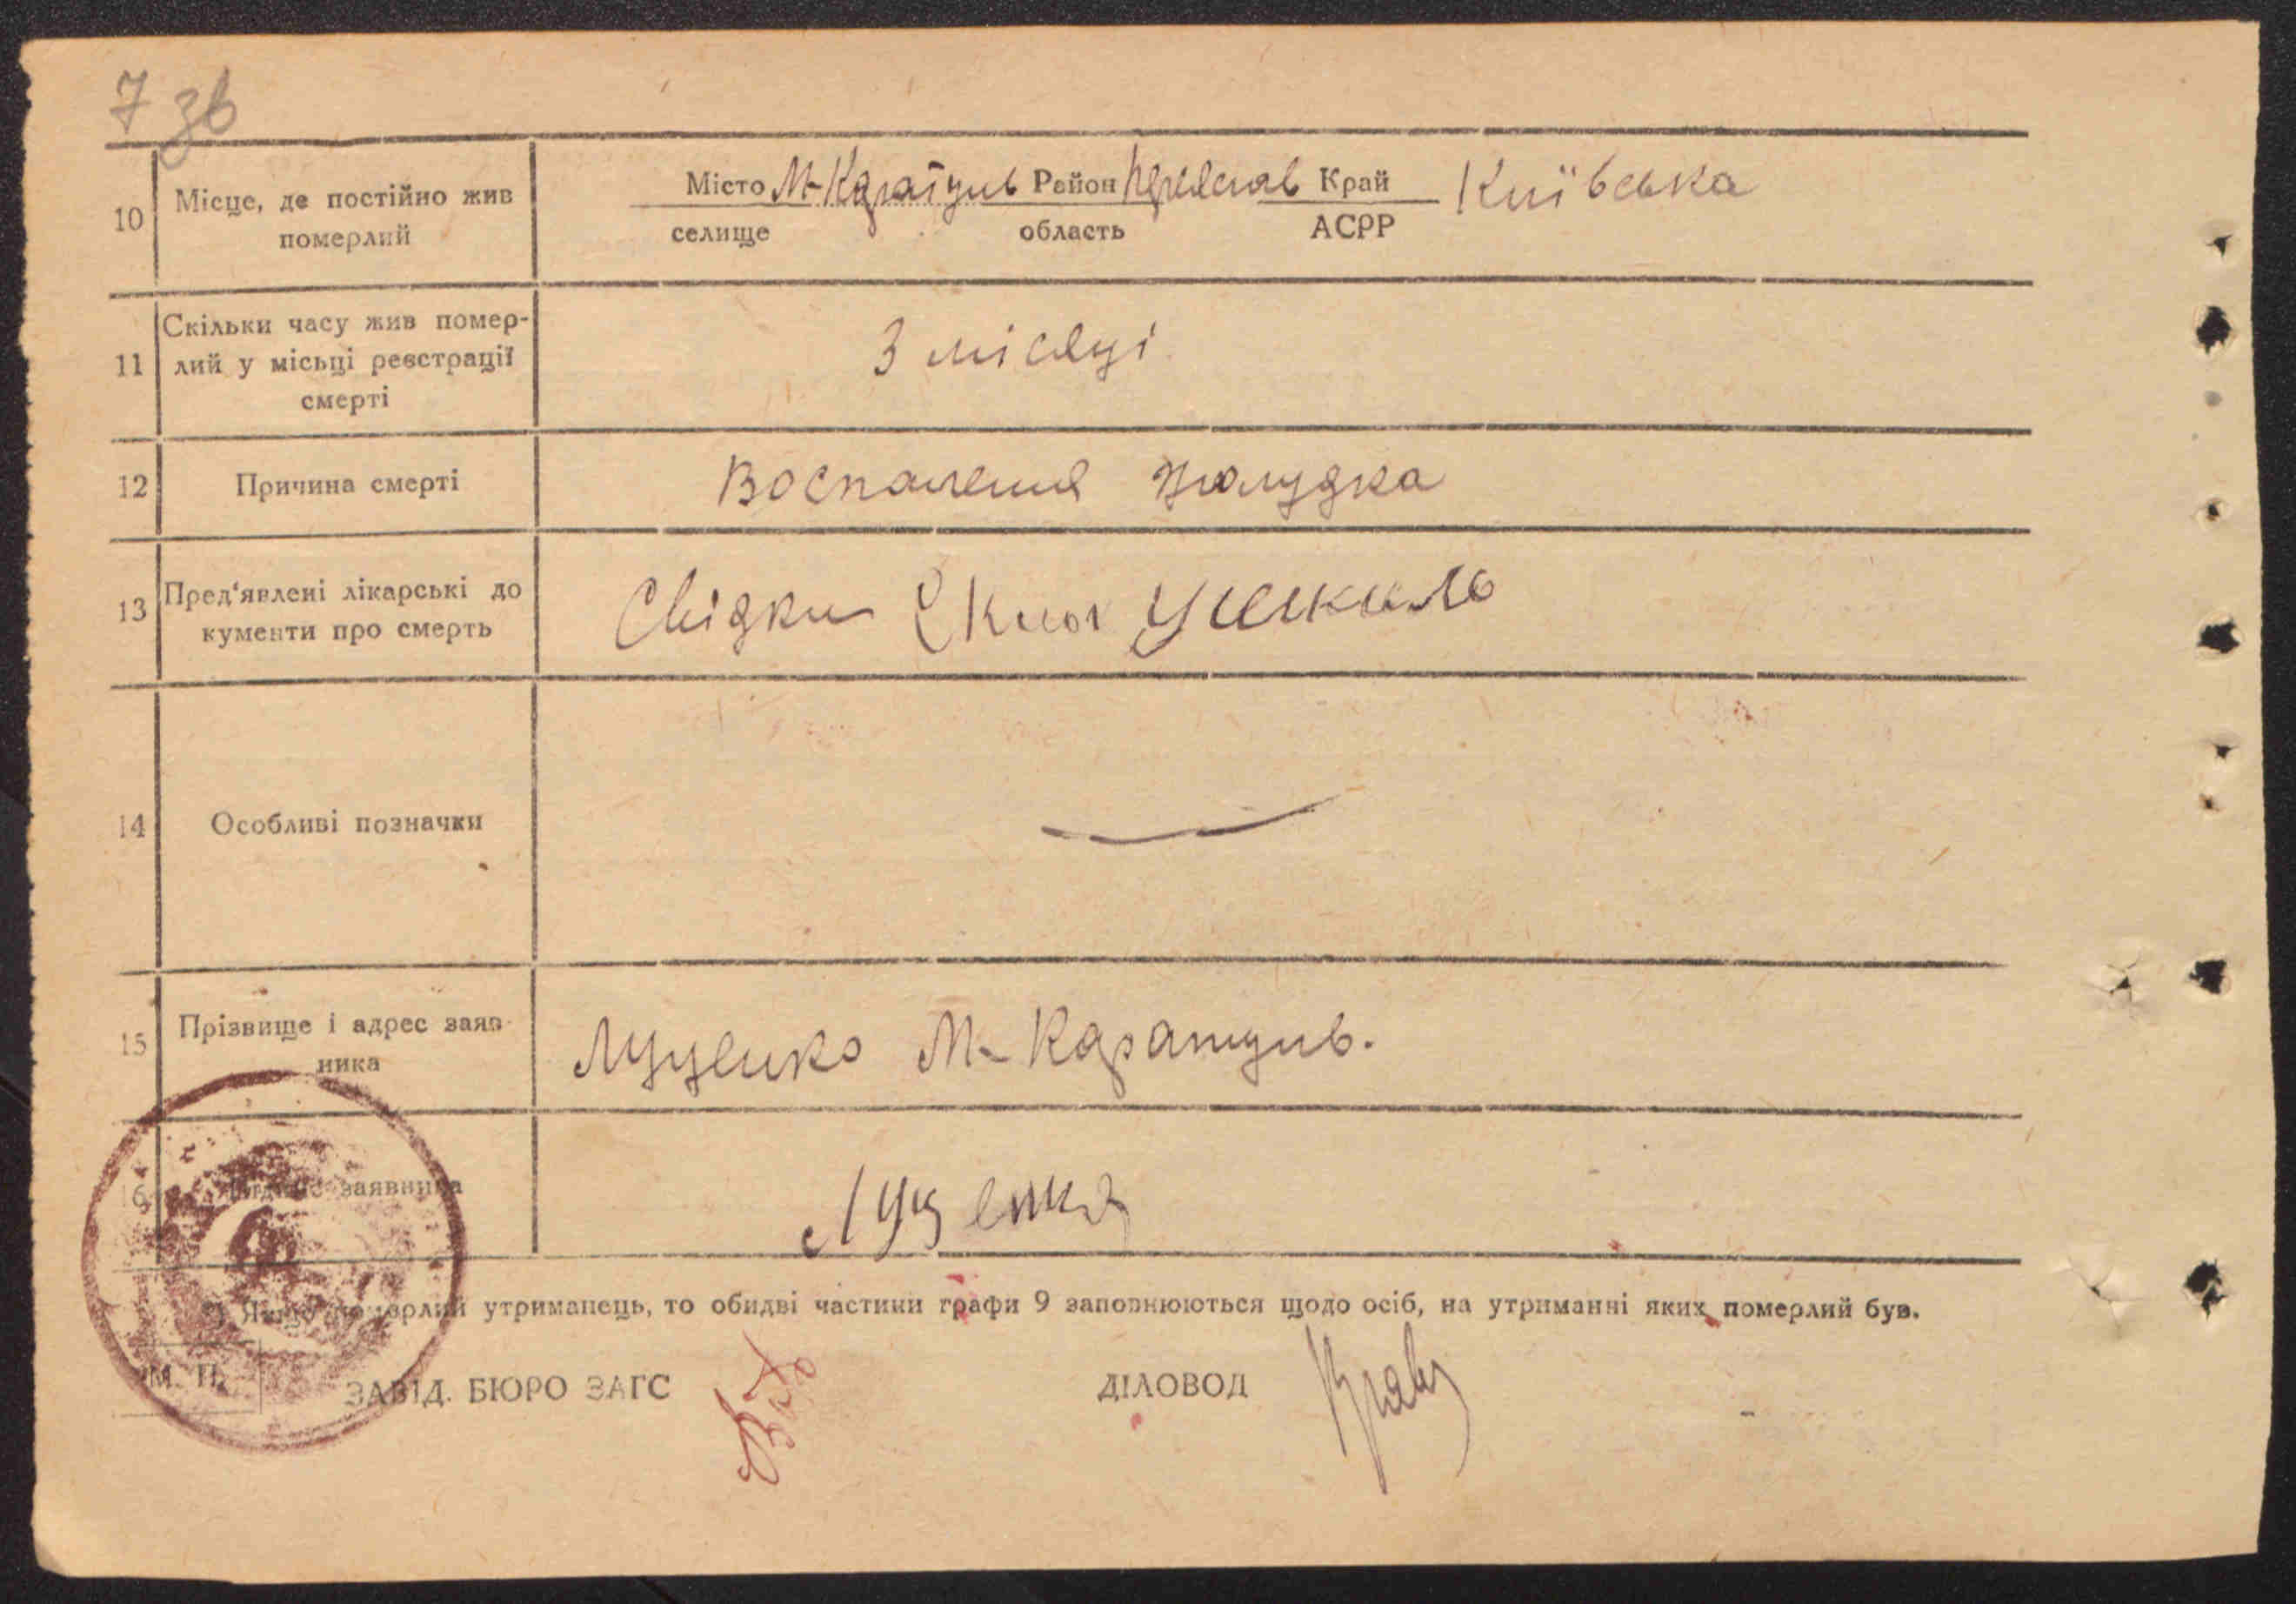 7 зв
10 Місце, де постійно жив померлий
Місто М-Каратуль Район Переяслав Край Київська
селище область АСРР
11 Скільки часу жив помер-
лий у місьці реєстрації
смерті
3 місяці
12 Причина смерті
Воспаления желудка
13 Пред'явлені лікарські до
кументи про смерть
Свідки
14 Особливі позначки
15 Прізвище і адрес заяв
ника
Луценко М-Каратуль.
16 Підпис заявника
Луценко
*) Якщо померлий утриманець, то обидві частини графи 9 заповнюються щодо осіб, на утриманні яких померлий був.
М. П.
ЗАВІД. БЮРО ЗАГС
ДІЛОВОД